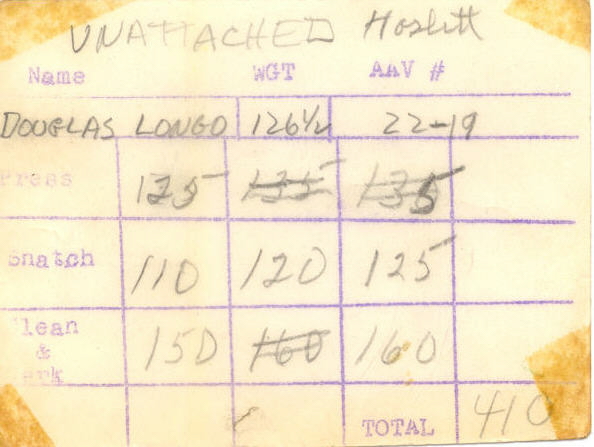 UNATTACHED Hoslett
Name WGT AAV #
DOUGLAS LONGO 126½ 22-19
Press 125 135 135
Snatch 110 120 125
Clean 150 160 160
&
erk
TOTAL 410